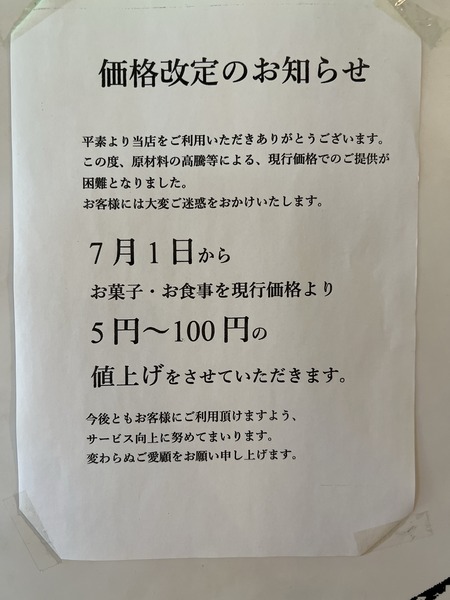 価格改定のお知らせ
平素より当店をご利用いただきありがとうございます。
この度、原材料の高騰等による、現行価格でのご提供が
困難となりました。
お客様には大変ご迷惑をおかけいたします。
7月1日から
お菓子・お食事を現行価格より
5円〜100円の
値上げをさせていただきます。
今後ともお客様にご利用頂けますよう、
サービス向上に努めてまいります。
変わらぬご愛顧をお願い申し上げます。